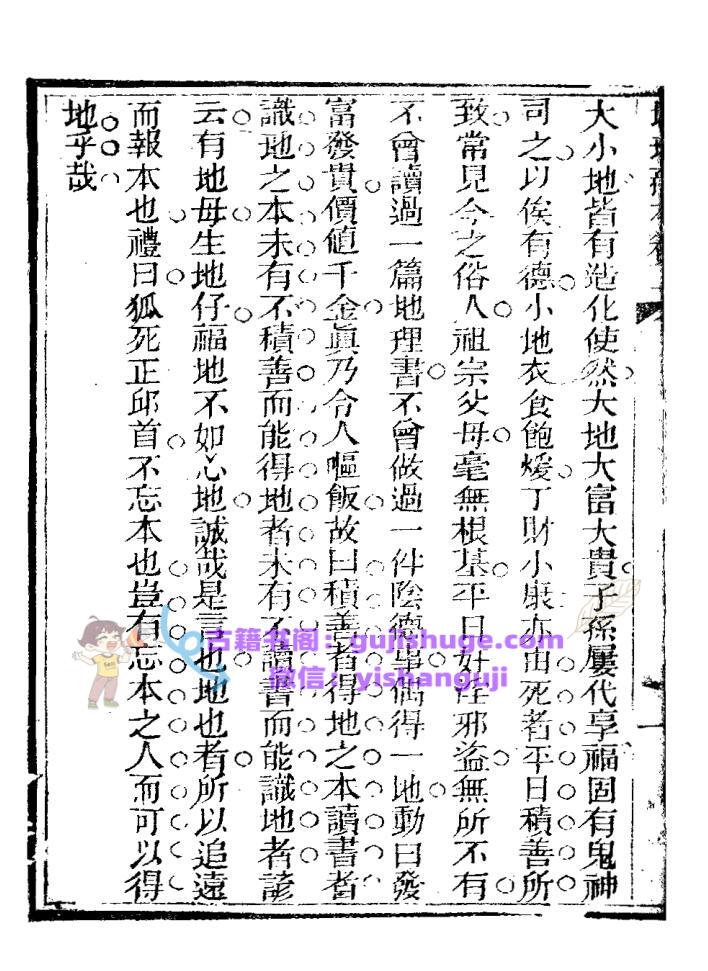 大小地皆有造化使然大地大富大貴子孫屢代享福固有鬼神
司之以俟有德小地衣食飽煖丁財小康亦由死者平日積善所
致常見今之俗人祖宗父母毫無根基平日奸淫邪盜無所不有
不曾讀過一篇地理書不曾做過一件陰德事偶得一地動曰發
富發貴價值千金眞乃令人嘔飯故曰積善者得地之本讀書者
識地之本未有不積善而能得地者未有不讀書而能識地者諺
云有地母生地仔福地不如心地誠哉是言也地也者所以追遠
而報本也禮曰狐死正邱首不忘本也豈有忘本之人而可以得
地乎哉
古籍书阁：gujishuge.com
微信：yishanguji